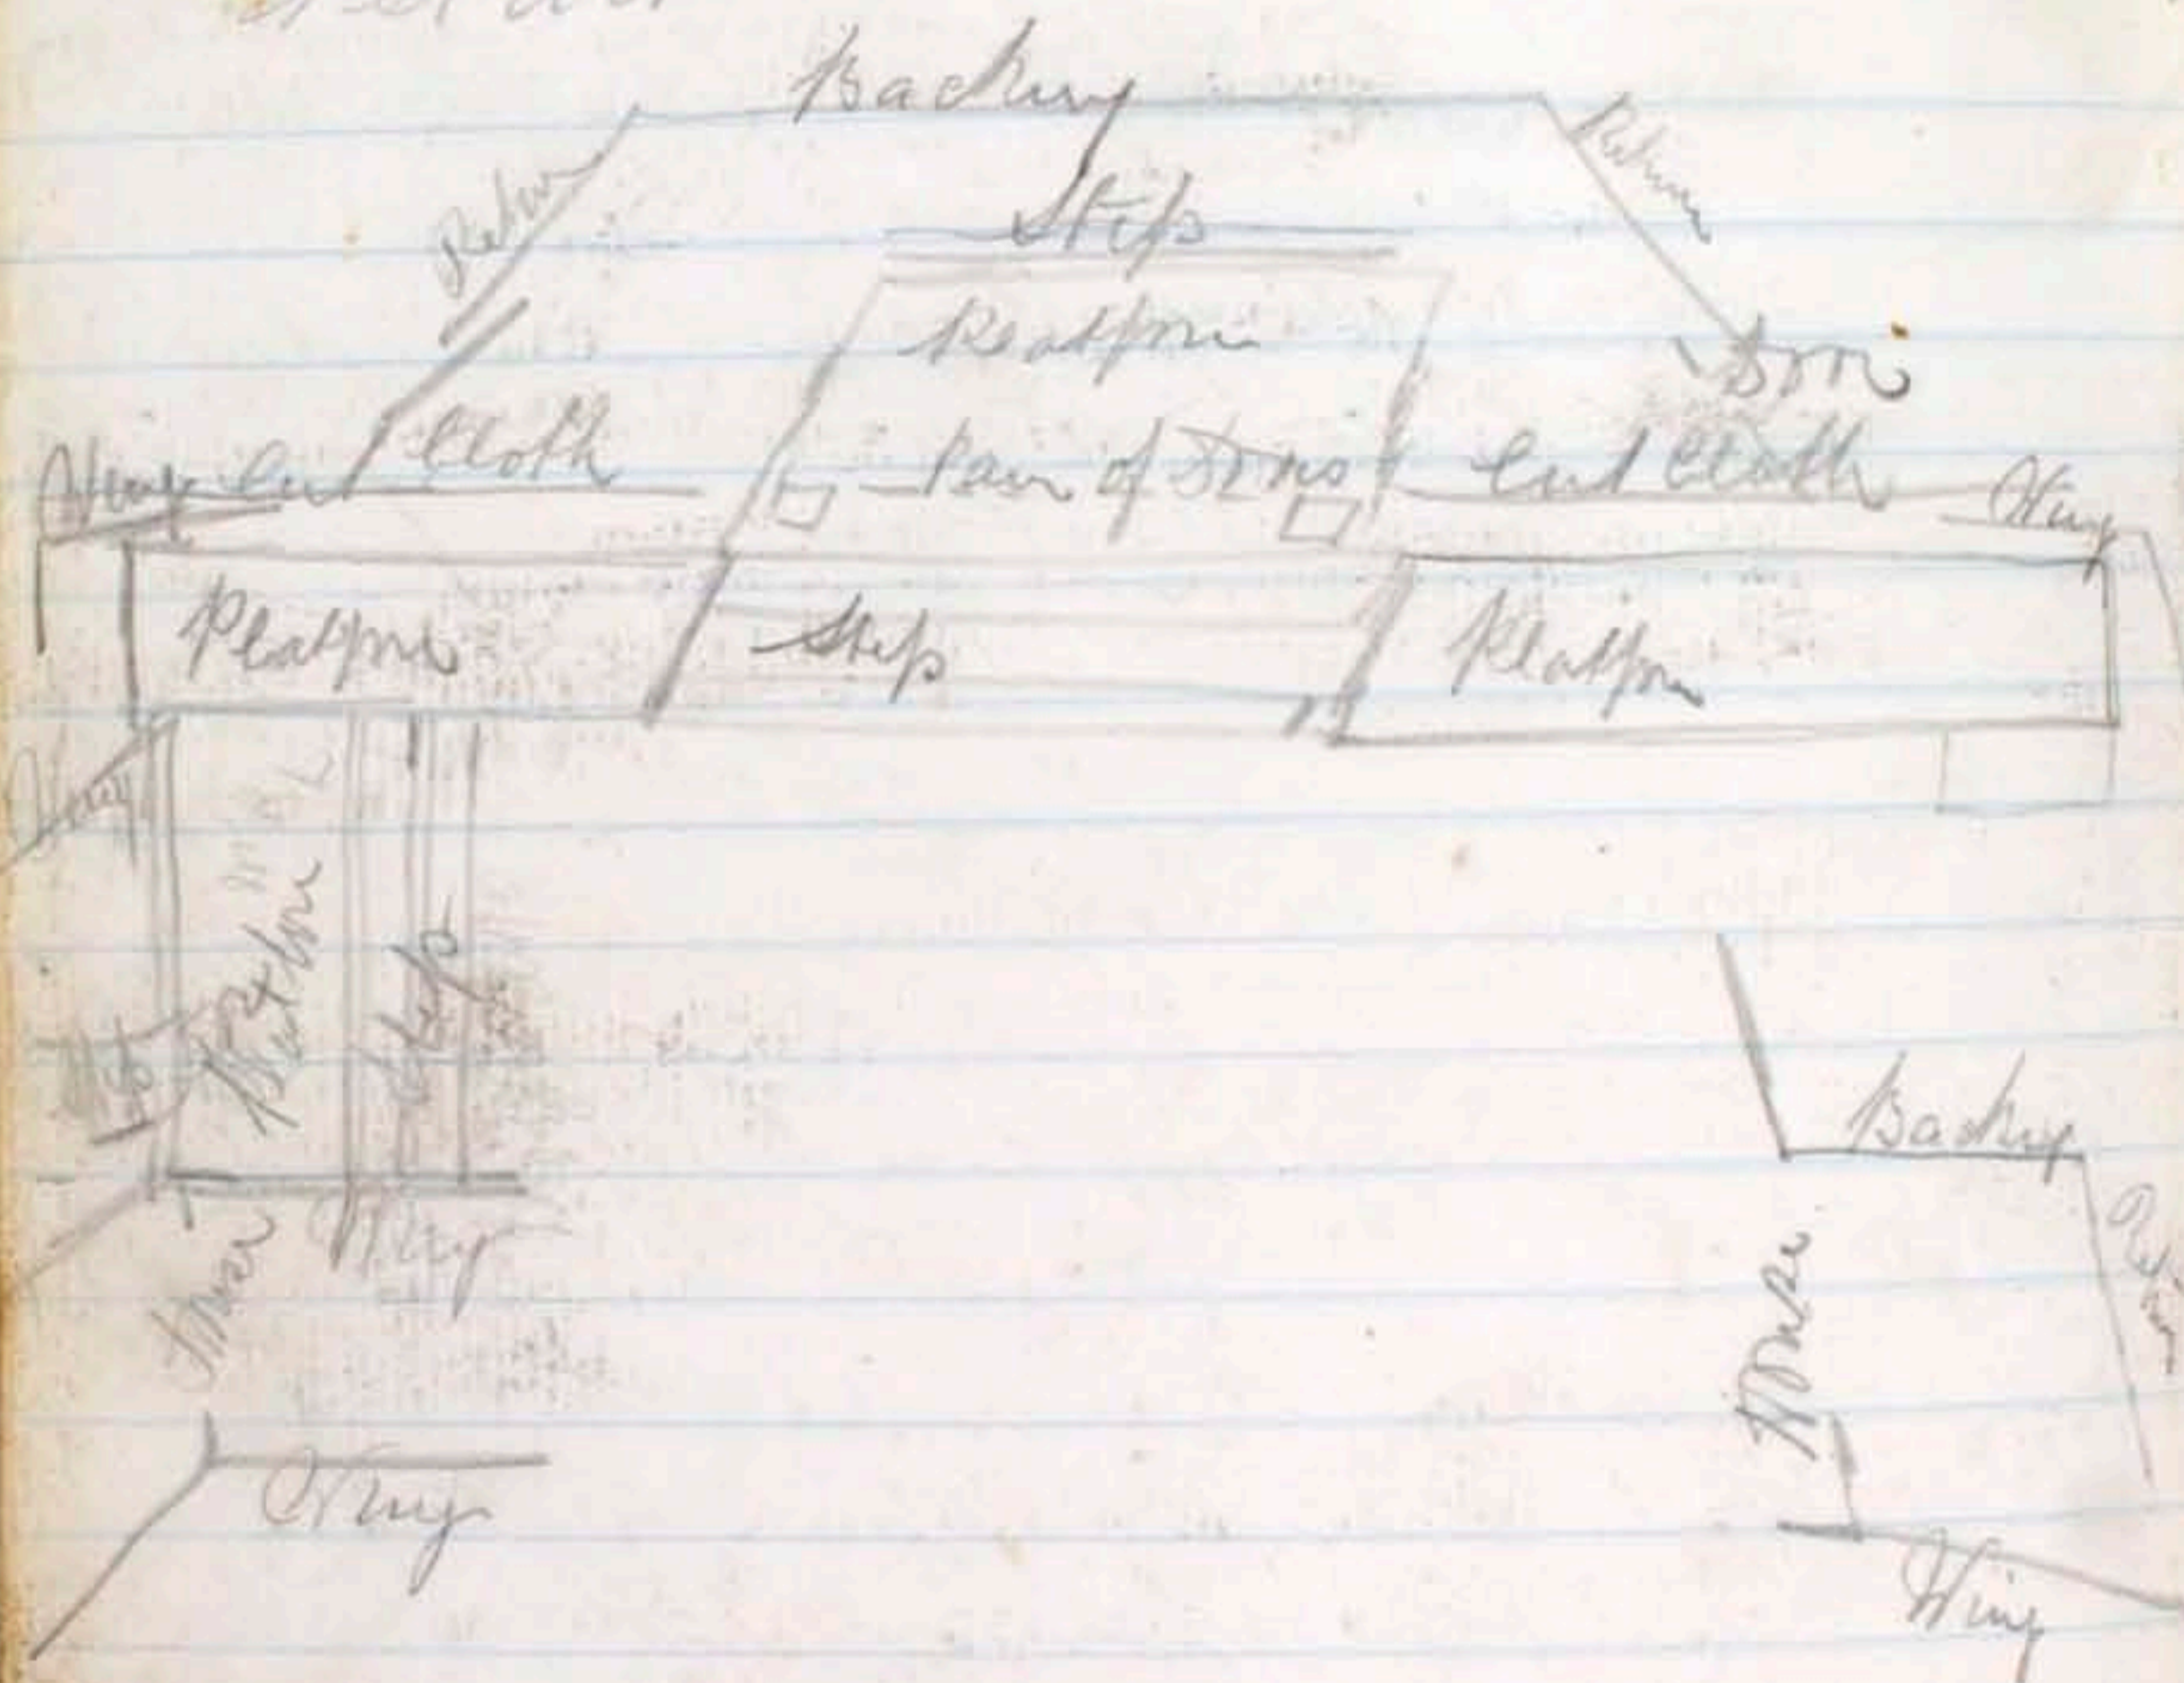 Backing
Return
Return
Steps
Platform
Door
Wing
Cut Cloth
Pair of Doors
Cut Cloth
Wing
Platform
Steps
Platform
Wing
Platform
Steps
Backing
Return
House
Wing
House
Wing
Wing